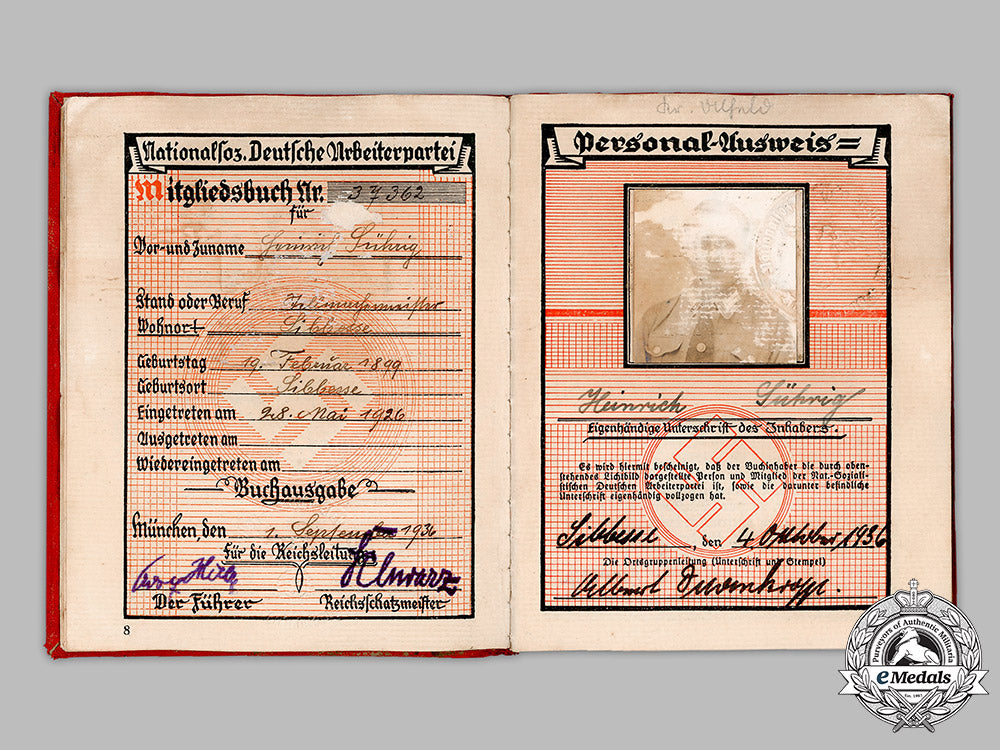 Nationalsoz. Deutsche Arbeiterpartei
Mitgliedsbuch Nr. 37362
für
Vor- und Zuname Heinrich Sührig
Stand oder Beruf
Wohnort Sibbesse
Geburtstag 19. Februar 1899
Geburtsort Sibbesse
Eingetreten am 28. Mai 1926
Ausgetreten am
Wiedereingetreten am
Buchausgabe
München, den 1. September 1936
Für die Reichsleitung
Schwarz
Der Führer Reichsschatzmeister
8
Personal-Ausweis
Heinrich Sührig
Eigenhändige Unterschrift des Inhabers.
Es wird hiermit bescheinigt, daß der Buchinhaber die durch oben-
stehendes Lichtbild dargestellte Person und Mitglied der Nat.-Soziali-
stischen Deutschen Arbeiterpartei ist, sowie die darunter befindliche
Unterschrift eigenhändig vollzogen hat.
Sibbesse, den 4. Oktober 1936
(Die Ortsgruppenleitung (Unterschrift und Stempel)
Purveyors of Authentic Militaria
eMedals